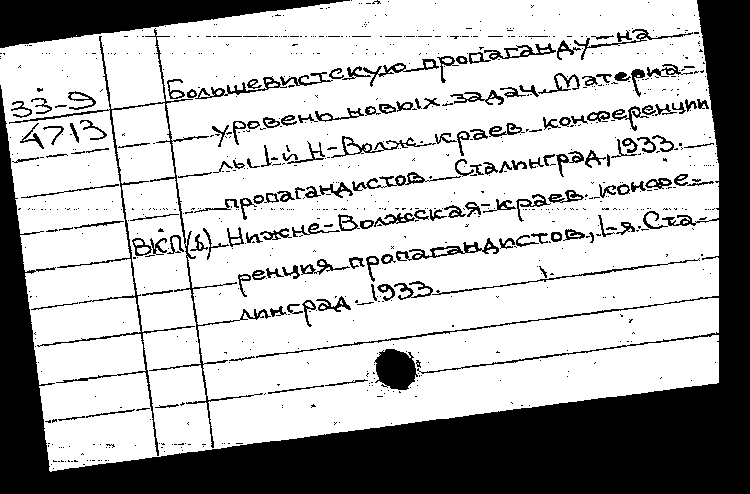 33-9
4713
Большевистскую пропаганду - на
уровень новых задач. Материа-
лы 1-й Н-Волж. краев. конференции
пропагандистов. Сталинград, 1933.
ВКП(б). Нижне-Волжская краев. конфе-
ренция пропагандистов, 1-я. Ста-
линград. 1933.